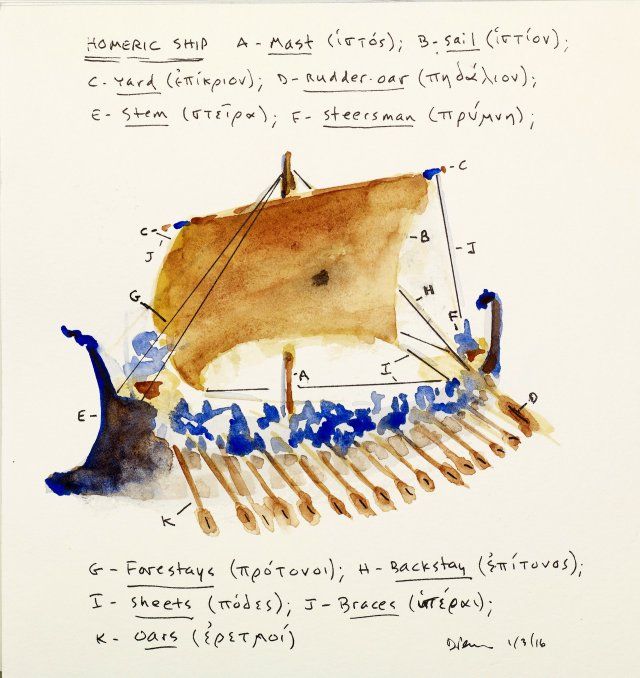 HOMERIC SHIP A - Mast (ἱστός); B - Sail (ἱστίον);
C - Yard (ἐπίκριον); D - Rudder-oar (πηδάλιον);
E - Stem (στεῖρα); F - Steersman (πρύμνη);
C
C
J
B
J
G
H
F
A
I
E
D
K
G - Forestays (πρότονοι); H - Backstay (ἐπίτονος);
I - Sheets (πόδες); J - Braces (ὑπέραι);
K - Oars (ἐρετμοί)
1/3/16